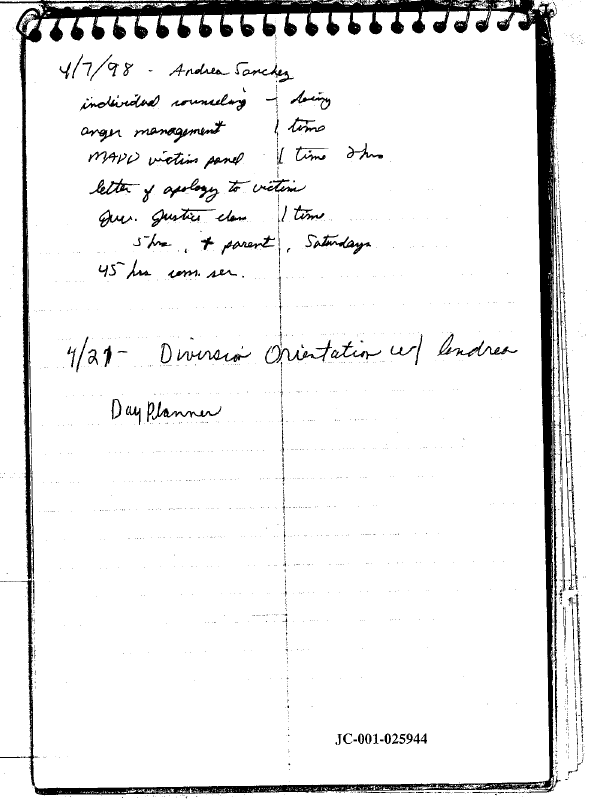 4/7/98 - Andrea Sanchez
individual counseling - doing
anger management 1 time
MADD victim panel 1 time 2 hrs
letter of apology to victim
Juv. Justice class 1 time
5 hrs, + parent, Saturdays
45 hrs com. ser.
4/21 - Diversion Orientation w/
Day Planner
JC-001-025944